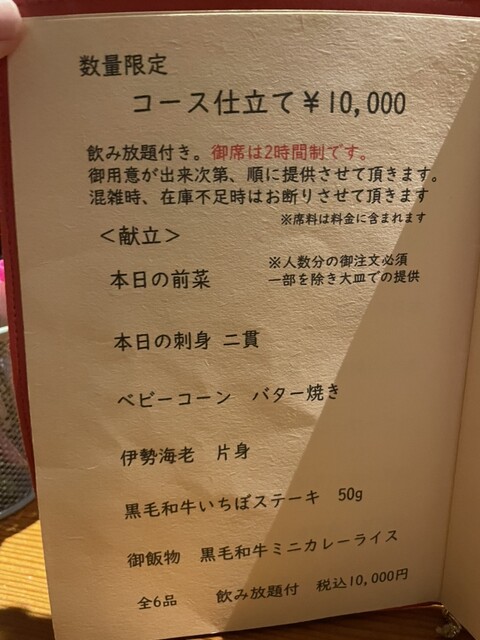 数量限定
コース仕立て￥10,000
飲み放題付き。御席は2時間制です。
御用意が出来次第、順に提供させて頂きます。
混雑時、在庫不足時はお断りさせて頂きます
※席料は料金に含まれます
＜献立＞
※人数分の御注文必須
一部を除き大皿での提供
本日の前菜
本日の刺身 二貫
ベビーコーン バター焼き
伊勢海老 片身
黒毛和牛いちぼステーキ 50g
御飯物 黒毛和牛ミニカレーライス
全6品 飲み放題付 税込10,000円